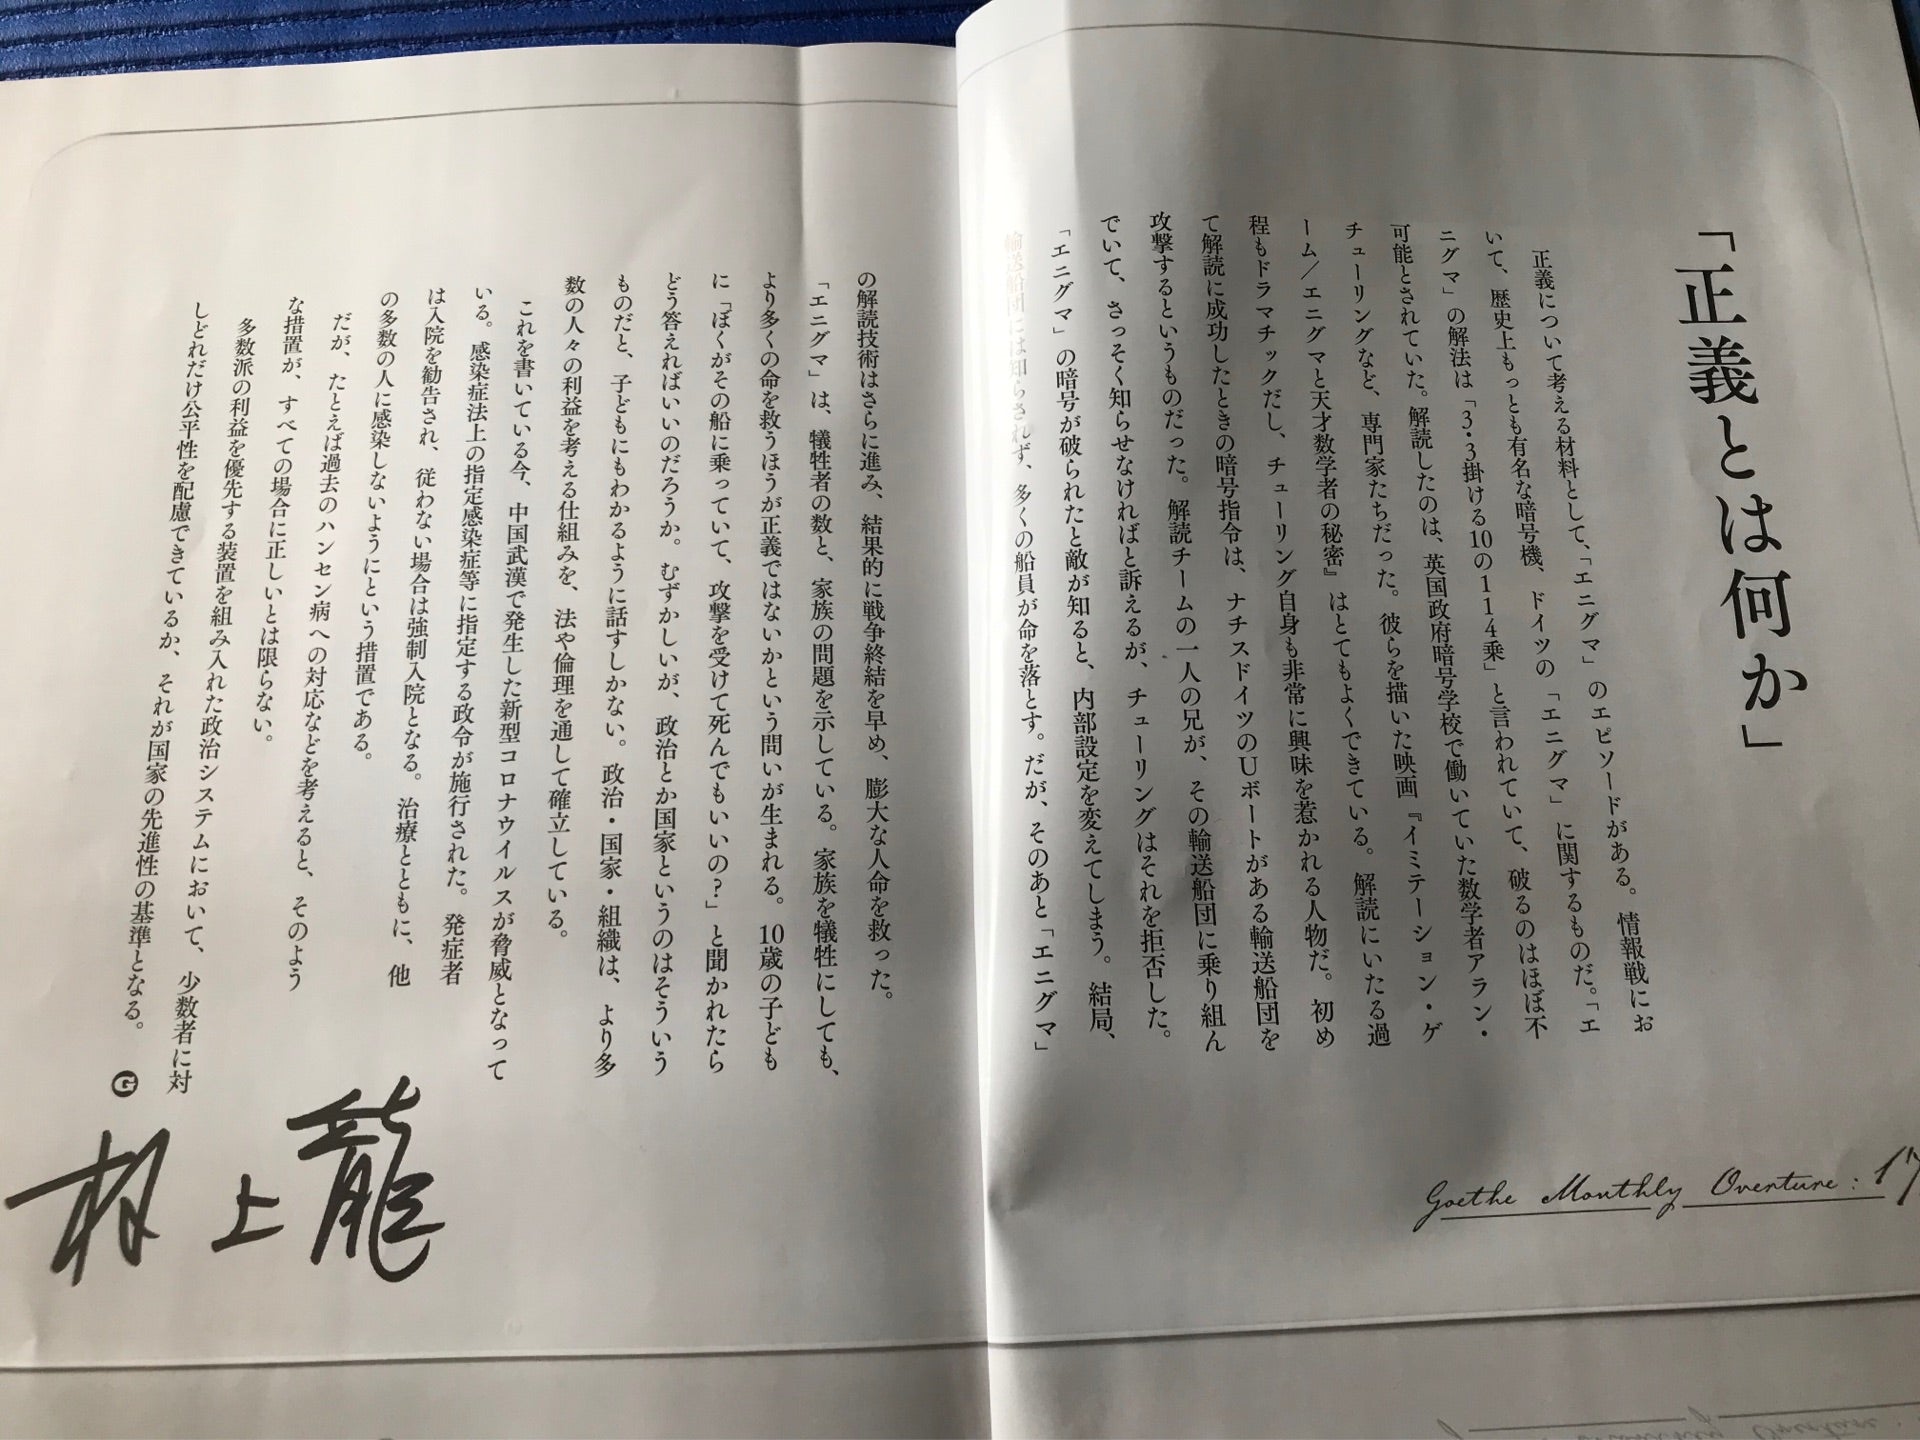 「正義とは何か」
正義について考える材料として、「エニグマ」のエピソードがある。情報戦にお
いて、歴史上もっとも有名な暗号機、ドイツの「エニグマ」に関するものだ。「エ
ニグマ」の解法は「3・3掛ける10の114乗」と言われていて、破るのはほぼ不
可能とされていた。解読したのは、英国政府暗号学校で働いていた数学者アラン・
チューリングなど、専門家たちだった。彼らを描いた映画『イミテーション・ゲ
ーム/エニグマと天才数学者の秘密』はとてもよくできている。解読にいたる過
程もドラマチックだし、チューリング自身も非常に興味を惹かれる人物だ。初め
て解読に成功したときの暗号指令は、ナチスドイツのUボートがある輸送船団を
攻撃するというものだった。解読チームの一人の兄が、その輸送船団に乗り組ん
でいて、さっそく知らせなければと訴えるが、チューリングはそれを拒否した。
「エニグマ」の暗号が破られたと敵が知ると、内部設定を変えてしまう。結局、
輸送船団には知らされず、多くの船員が命を落とす。だが、そのあと「エニグマ」
の解読技術はさらに進み、結果的に戦争終結を早め、膨大な人命を救った。
「エニグマ」は、犠牲者の数と、家族の問題を示している。家族を犠牲にしても、
より多くの命を救うほうが正義ではないかという問いが生まれる。10歳の子ども
に「ぼくがその船に乗っていて、攻撃を受けて死んでもいいの?」と聞かれたら
どう答えればいいのだろうか。むずかしいが、政治とか国家というのはそういう
ものだと、子どもにもわかるように話すしかない。政治・国家・組織は、より多
数の人々の利益を考える仕組みを、法や倫理を通して確立している。
これを書いている今、中国武漢で発生した新型コロナウイルスが脅威となって
いる。感染症法上の指定感染症等に指定する政令が施行された。発症者
は入院を勧告され、従わない場合は強制入院となる。治療とともに、他
の多数の人に感染しないようにという措置である。
だが、たとえば過去のハンセン病への対応などを考えると、そのよう
な措置が、すべての場合に正しいとは限らない。
多数派の利益を優先する装置を組み入れた政治システムにおいて、少数者に対
しどれだけ公平性を配慮できているか、それが国家の先進性の基準となる。 G
村上龍
Goethe Monthly Overture: 17